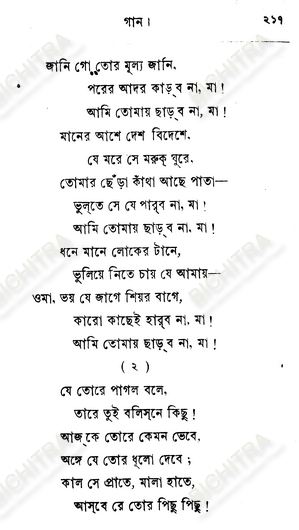 গান।
২১৭
জানি গো তোর মূল্য জানি,
পরের আদর কাড়্‌ব না, মা!
আমি তোমায় ছাড়্‌ব না, মা!
মানের আশে দেশ বিদেশে,
যে মরে সে মরুক্ ঘুরে,
তোমার ছেঁড়া কাঁথা আছে পাতা—
ভুল্‌তে সে যে পার্‌ব না, মা!
আমি তোমায় ছাড়্‌ব না, মা!
ধনে মানে লোকের টানে,
ভুলিয়ে নিতে চায় যে আমায়—
ওমা, ভয় যে জাগে শিয়র বাগে,
কারো কাছেই হার্‌ব না, মা!
আমি তোমায় ছাড়্‌ব না, মা!
( ২ )
যে তোরে পাগল বলে,
তারে তুই বলিস্‌নে কিছু!
আজ্‌কে তোরে কেমন ভেবে,
অঙ্গে যে তোর ধূলো দেবে;
কাল সে প্রাতে, মালা হাতে,
আস্‌বে রে তোর পিছু পিছু!
BICHITRA
BICHITRA
BICHITRA
BICHITRA
BICHITRA
BICHITRA